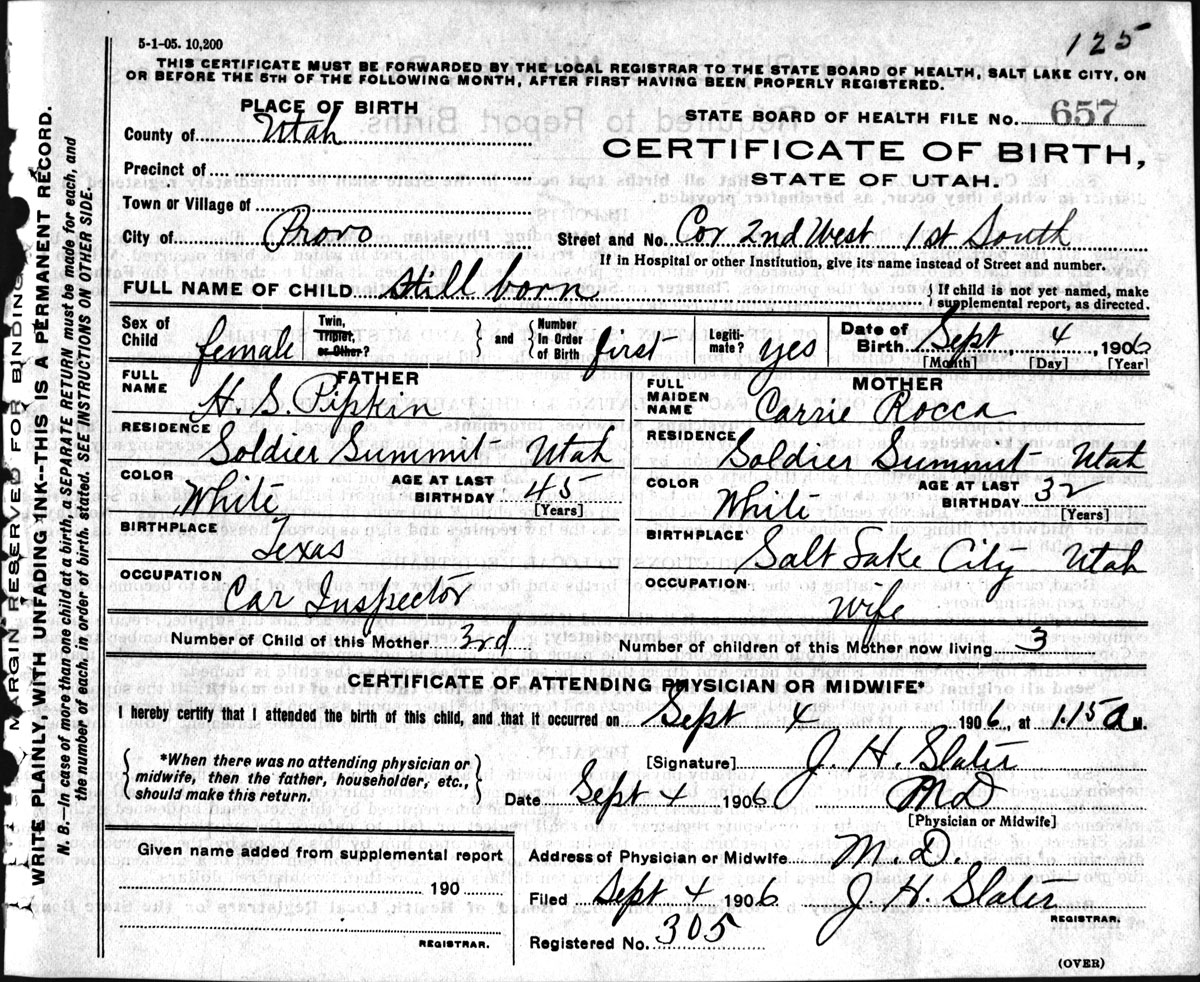 5-1-05. 10,200
125
THIS CERTIFICATE MUST BE FORWARDED BY THE LOCAL REGISTRAR TO THE STATE BOARD OF HEALTH, SALT LAKE CITY, ON
OR BEFORE THE 5TH OF THE FOLLOWING MONTH, AFTER FIRST HAVING BEEN PROPERLY REGISTERED.
MARGIN RESERVED FOR BINDING
WRITE PLAINLY, WITH UNFADING INK--THIS IS A PERMANENT RECORD.
N. B.—In case of more than one child at a birth, a SEPARATE RETURN must be made for each, and
the number of each, in order of birth, stated. SEE INSTRUCTIONS ON OTHER SIDE.
PLACE OF BIRTH
County of Utah
Precinct of
Town or Village of
City of Provo
STATE BOARD OF HEALTH FILE No. 657
CERTIFICATE OF BIRTH,
STATE OF UTAH.
Street and No. Cor 2nd West 1st South
If in Hospital or other Institution, give its name instead of Street and number.
FULL NAME OF CHILD still born
{ If child is not yet named, make
supplemental report, as directed.
Sex of Child female
Twin, Triplet, or Other?
} and { Number In Order of Birth first
Legiti-mate? yes
Date of Birth Sept 4, 1906
[Month] [Day] [Year]
FATHER
FULL NAME H. S. Pipkin
RESIDENCE Soldier Summit Utah
COLOR White
AGE AT LAST BIRTHDAY 45
[Years]
BIRTHPLACE Texas
OCCUPATION Car Inspector
MOTHER
FULL MAIDEN NAME Carrie Rocca
RESIDENCE Soldier Summit Utah
COLOR White
AGE AT LAST BIRTHDAY 32
[Years]
BIRTHPLACE Salt Lake City Utah
OCCUPATION Wife
Number of Child of this Mother 3rd
Number of children of this Mother now living 3
CERTIFICATE OF ATTENDING PHYSICIAN OR MIDWIFE*
I hereby certify that I attended the birth of this child, and that it occurred on Sept 4 1906, at 1.15 a M.
{ *When there was no attending physician or
midwife, then the father, householder, etc.,
should make this return. }
[Signature] J. H. Slater
Date Sept 4 1906
MD
[Physician or Midwife]
Given name added from supplemental report
190
REGISTRAR.
Address of Physician or Midwife M. D.
Filed Sept 4 1906 J H. Slater
REGISTRAR.
Registered No. 305
(OVER)